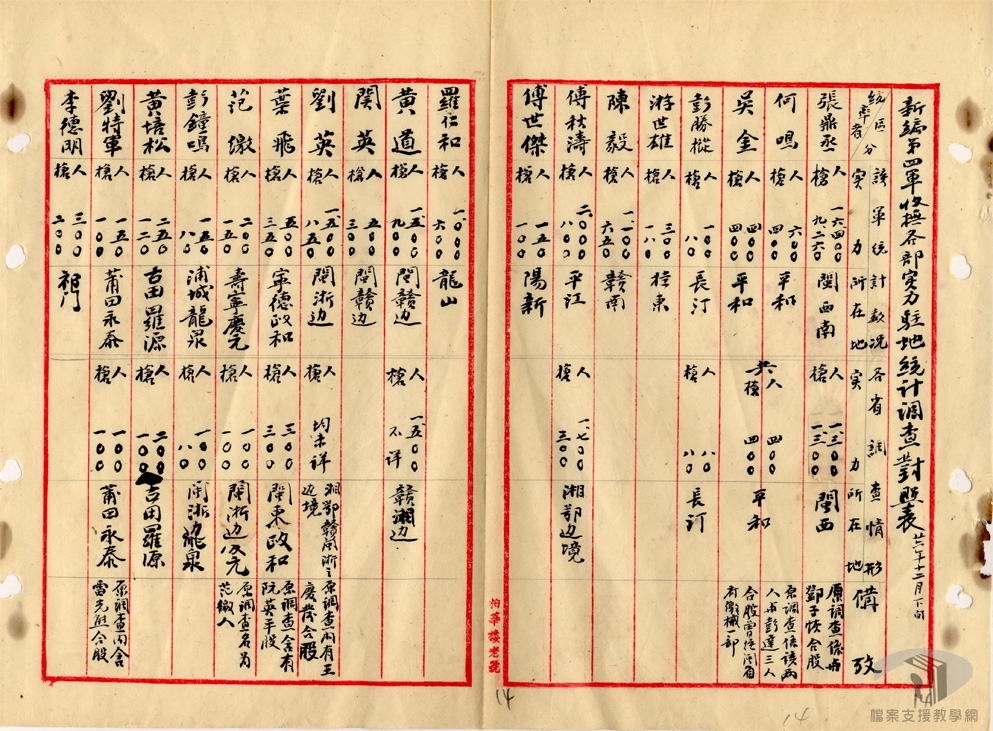 新編第四軍收撫各部實力駐地統計調查對照表 廿六年十二月下旬
區分 統率者 該軍統計數況 實力 所在地 各省調查情形 實力 所在地 備攷
張鼎丞 人 一六四〇〇 槍 九二六〇 閩西南 人 一、三〇〇 槍 一、三〇〇 閩西 原調查係與鄧子恢合股
何鳴 人 六〇〇 槍 四〇〇 平和 共人 四〇〇 槍 四〇〇 平和 原調查係該兩人與彭達三人合股曾經閩省府徵械一部
吳金 人 四〇〇 槍 四〇〇 平和
彭勝樅 人 一〇〇 槍 八〇 長汀 人 八〇 槍 八〇 長汀
游世雄 人 三〇 槍 一八〇 桂東
陳毅 人 一、一〇〇 槍 六五〇 贛南
傅秋濤 人 二、〇〇〇 槍 一、八〇〇 平江 人 一、七〇〇 槍 三〇〇 湘鄂边境
傅世傑 人 一五〇 槍 一〇〇 陽新
羅仁和 人 一、〇〇〇 槍 六〇〇 龍山
黃道 人 一、五〇〇 槍 九〇〇 閩贛边 人 一、五〇〇 槍 不詳 贛湘边
関英 人 五〇〇 槍 三〇〇 閩贛边
劉英 人 一、五〇〇 槍 八五〇 閩浙边 人槍 均未詳 湘鄂贛閩浙之边境 原調查內有王慶蕃合股
葉飛 人 五〇〇 槍 三五〇 寧德政和 人 三〇〇 槍 三〇〇 閩東政和 原調查含有阮英平股
范徼 人 二〇〇 槍 一五〇 壽寧慶元 人 一〇〇 槍 一〇〇 閩浙边慶元 原調查名為范徼人
彭鐘鳴 人 一五〇 槍 一八〇 浦城龍泉 人 一〇〇 槍 八〇 閩浙边龍泉
黃培松 人 二五〇 槍 一二〇 古田羅源 人 二〇〇 槍 一〇〇 古田羅源
劉特軍 人 一五〇 槍 一〇〇 莆田永泰 人 一〇〇 槍 一〇〇 莆田永泰 原調查內含雷光熙合股
李德明 人 三〇〇 槍 二〇〇 祁門
怡華樓老號
14
14
檔案支援教學網